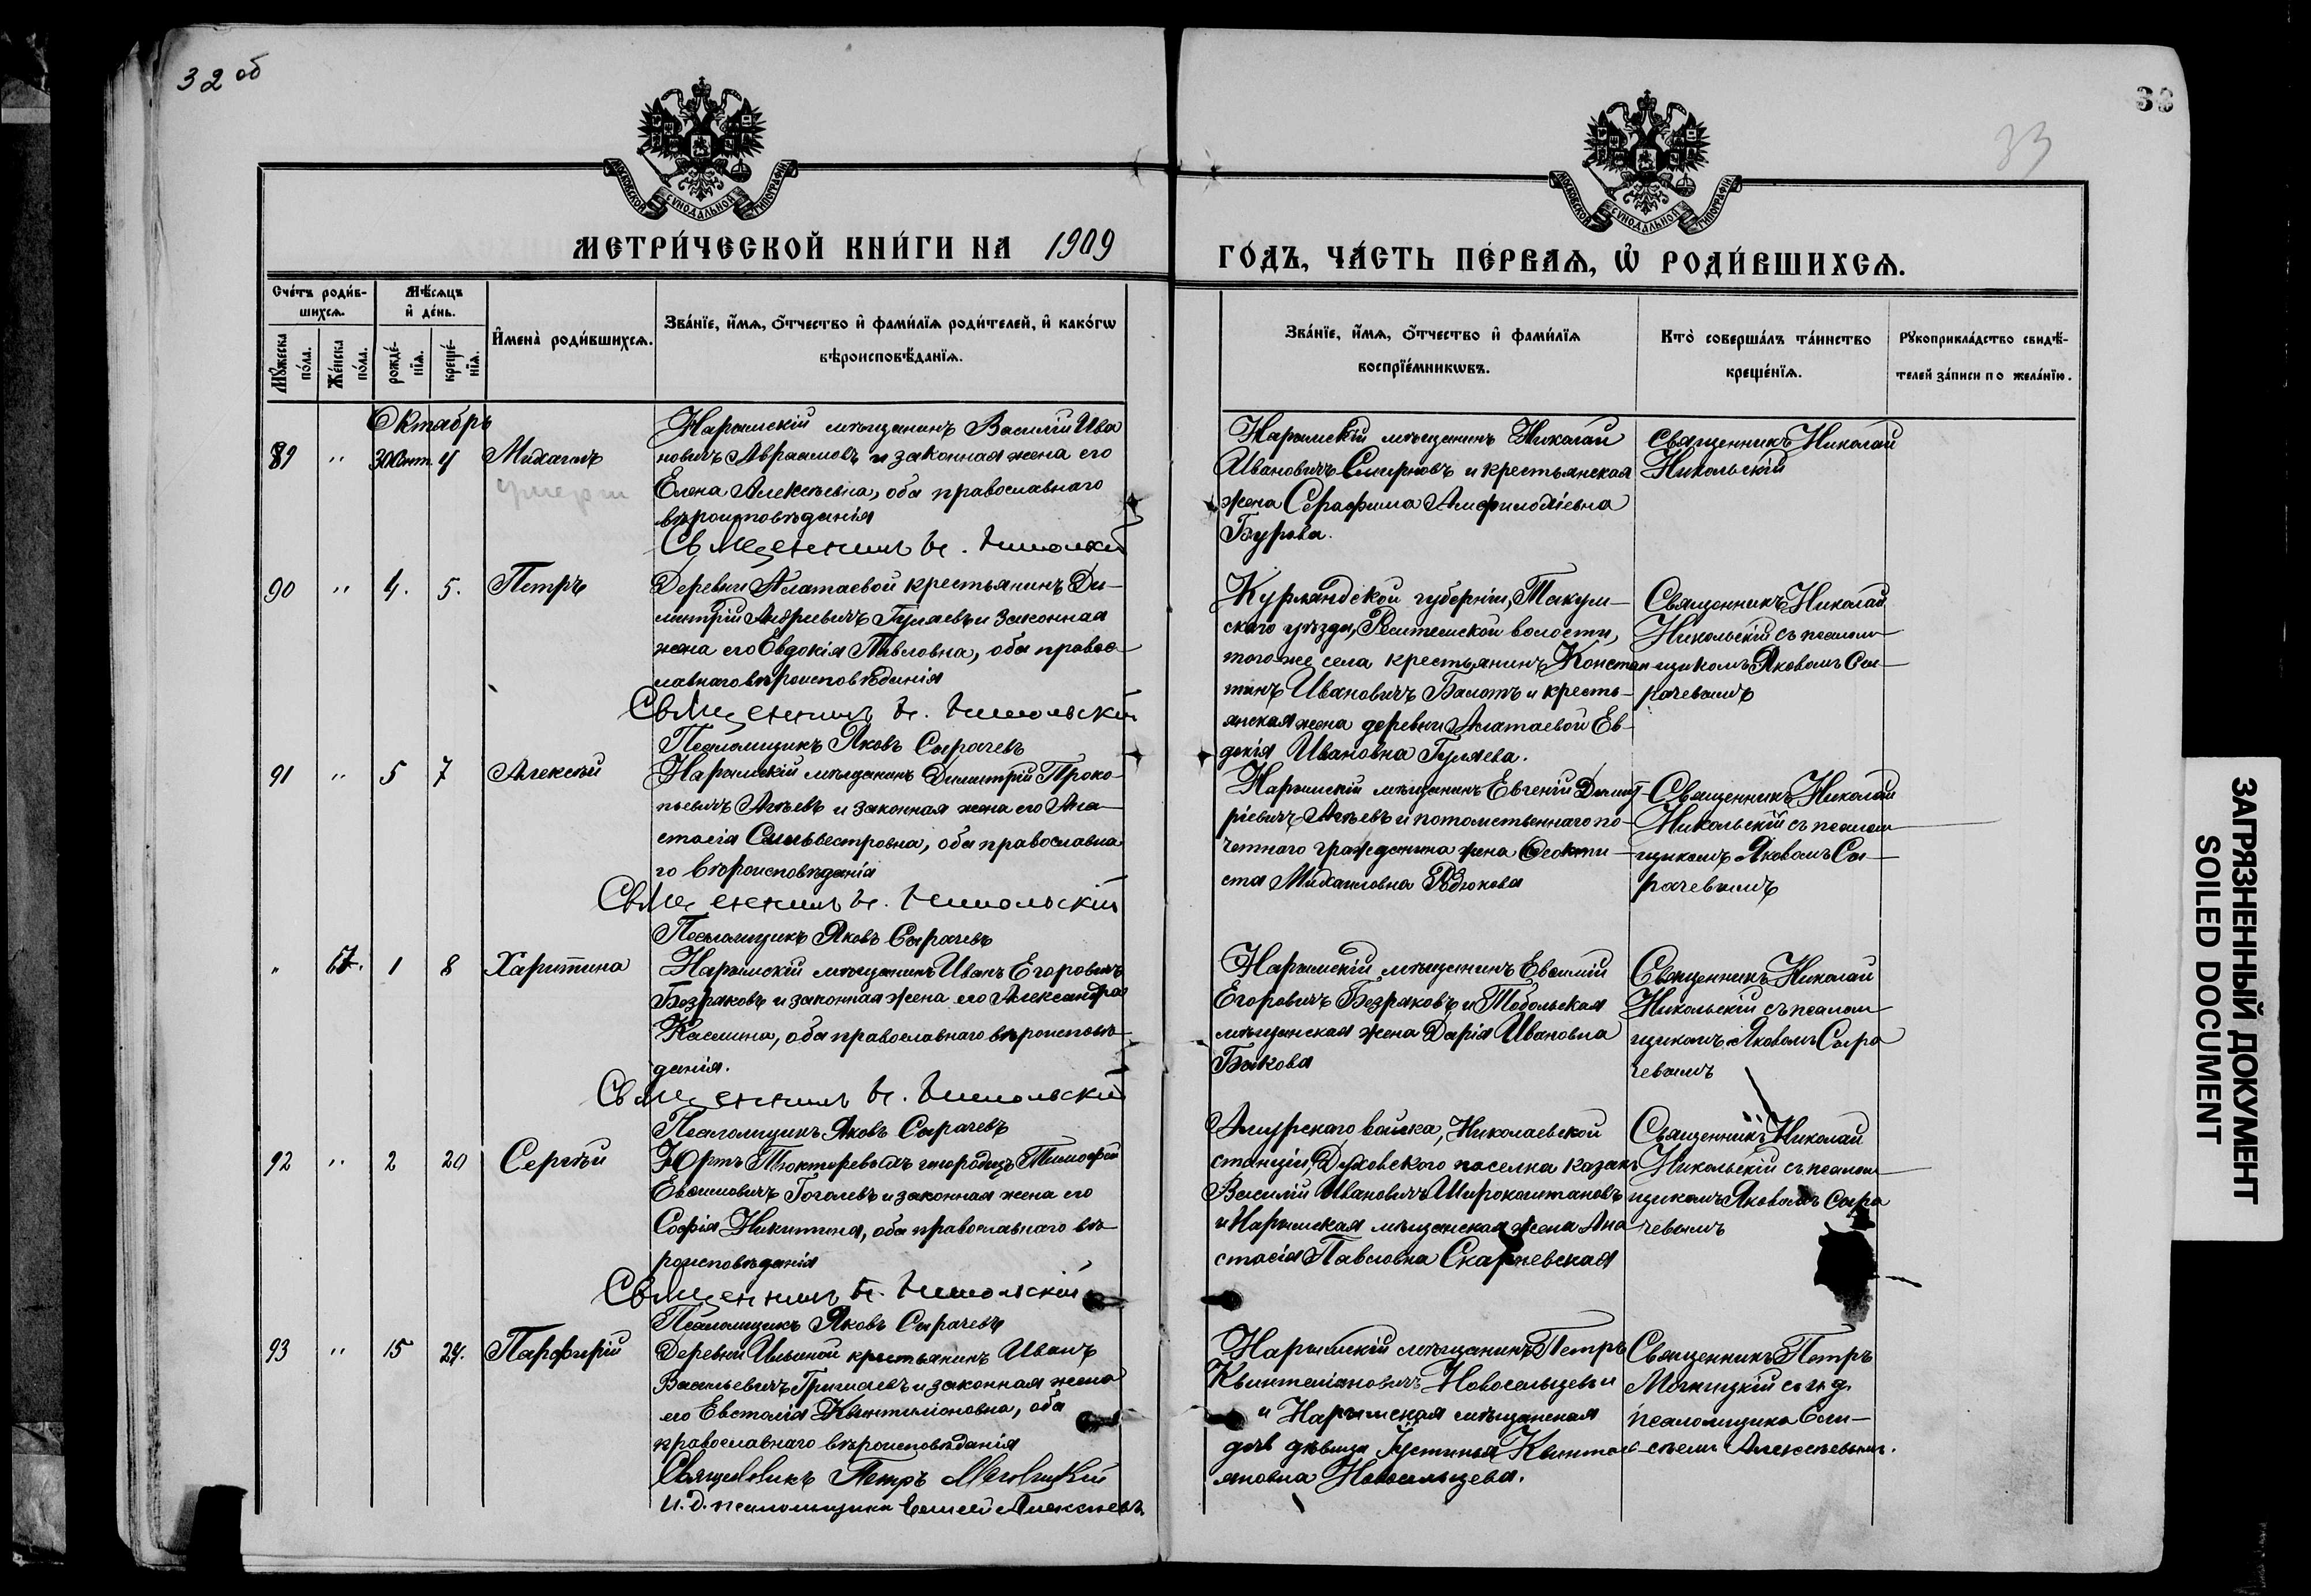 32 об
33
33
МОСКОВСКОЙ СУНОДАЛЬНОЙ ТИПОГРАФІИ
МОСКОВСКОЙ СУНОДАЛЬНОЙ ТИПОГРАФІИ
МЕТРИ́ЧЕСКОЙ КНИ́ГИ НА 1909
ГО́ДЪ, ЧА́СТЬ ПЕ́РВАѦ, Ѡ҆ РОДИ́ВШИХСѦ.
Сче́тъ роди́в-
шихсѧ.
Мꙋ́жеска по́ла.
Же́нска по́ла.
Мѣ́сѧцъ
и҆ де́нь.
рожде́-
нїѧ.
креще́-
нїѧ.
И҆мена̀ роди́вшихсѧ.
Зва́нїе, и҆́мѧ, ѻ҆́тчество и҆ фами́лїѧ роди́телей, и҆ како́гѡ
вѣроисповѣ́данїѧ.
Зва́нїе, и҆́мѧ, ѻ҆́тчество и҆ фами́лїѧ
воспрїе́мникѡвъ.
Кто̀ соверша́лъ та́инство
креще́нїѧ.
Рꙋкоприкла́дство свидѣ́-
телей за́писи по жела́нїю.
Октябрь
89 " 30 Сент. 4 Михаилъ
умерш
Нарымскій мѣщанинъ Василій Ива
новичъ Авраамовъ и законная жена его
Елена Алексѣевна, оба православнаго
вѣроисповѣданія
Священникъ Н. Никольскій
Нарымскій мѣщанинъ Николай
Ивановичъ Смирновъ и крестьянская
жена Серафима Амфилохіевна
Бурова.
Священникъ Николай
Никольскій
90 " 4. 5. Петръ
Деревни Алатаевой крестьянинъ Ди-
митрій Андреевичъ Гуляевъ и законная
жена его Евдокія Павловна, оба правос-
лавнаго вѣроисповѣданія
Священникъ Н. Никольскій
Псаломщикъ Яковъ Сырачевъ
Курляндской губерніи,
скаго уѣзда, волости,
того-же села крестьянинъ Констан
тинъ Ивановичъ и кресть-
янская жена деревни Алатаевой Ев-
докія Ивановна Гуляева.
Священникъ Николай
Никольскій съ псалом-
щикомъ Яковомъ Сы-
рачевымъ
91 " 5 7 Алексѣй
Нарымскій мѣщанинъ Димитрій Проко-
пьевичъ Агѣевъ и законная жена его Ана-
стасія Сильвестровна, оба православна
го вѣроисповѣданія
Священникъ Н. Никольскій
Псаломщикъ Яковъ Сырачевъ
Нарымскій мѣщанинъ Евгеній Димит-
ріевичъ Агѣевъ и потомственнаго по-
четнаго гражданина жена Феокти-
ста Михаиловна Родюкова
Священникъ Николай
Никольскій съ псалом-
щикомъ Яковомъ Сы-
рачевымъ
" 67. 1 8 Харитина
Нарымскій мѣщанинъ Иванъ Егоровичъ
Безряковъ и законная жена его Александра
Касьянна, оба православнаго вѣроисповѣ-
данія.
Священникъ Н. Никольскій
Псаломщикъ Яковъ Сырачевъ
Нарымскій мѣщанинъ Евсевій
Егоровичъ Безряковъ и Тобольская
мѣщанская жена Дарія Ивановна
Быкова
Священникъ Николай
Никольскій съ псалом-
щикомъ Яковомъ Сыра
чевымъ
92 " 2 20 Сергѣй
Юртъ инородецъ Тимофей
Евфимовичъ Гоголевъ и законная жена его
Софія Никитина, оба православнаго вѣ-
роисповѣданія
Священникъ Н. Никольскій
Псаломщикъ Яковъ Сырачевъ
Амурскаго войска, Николаевской
станціи, Духовскаго поселка казакъ
Василій Ивановичъ
и Нарымская мѣщанская жена Ана
стасія Павловна
Священникъ Николай
Никольскій съ псалом-
щикомъ Яковомъ Сыра
чевымъ
93 " 15 24. Парфирій
Деревни Ильиной крестьянинъ Иванъ
Васильевичъ и законная жена
его Евсталія Квинтиліоновна, оба
православнаго вѣроисповѣданія
Священникъ Петръ
И. д. псаломщика Алексѣевъ
Нарымскій мѣщанинъ Петръ
Новосельцевъ и
и Нарымская мѣщанская
дочь дѣвица Іустинья
Новосельцева.
Священникъ Петръ
съ и. д.
псаломщика
Алексѣевымъ.
ЗАГРЯЗНЕННЫЙ ДОКУМЕНТ
SOILED DOCUMENT